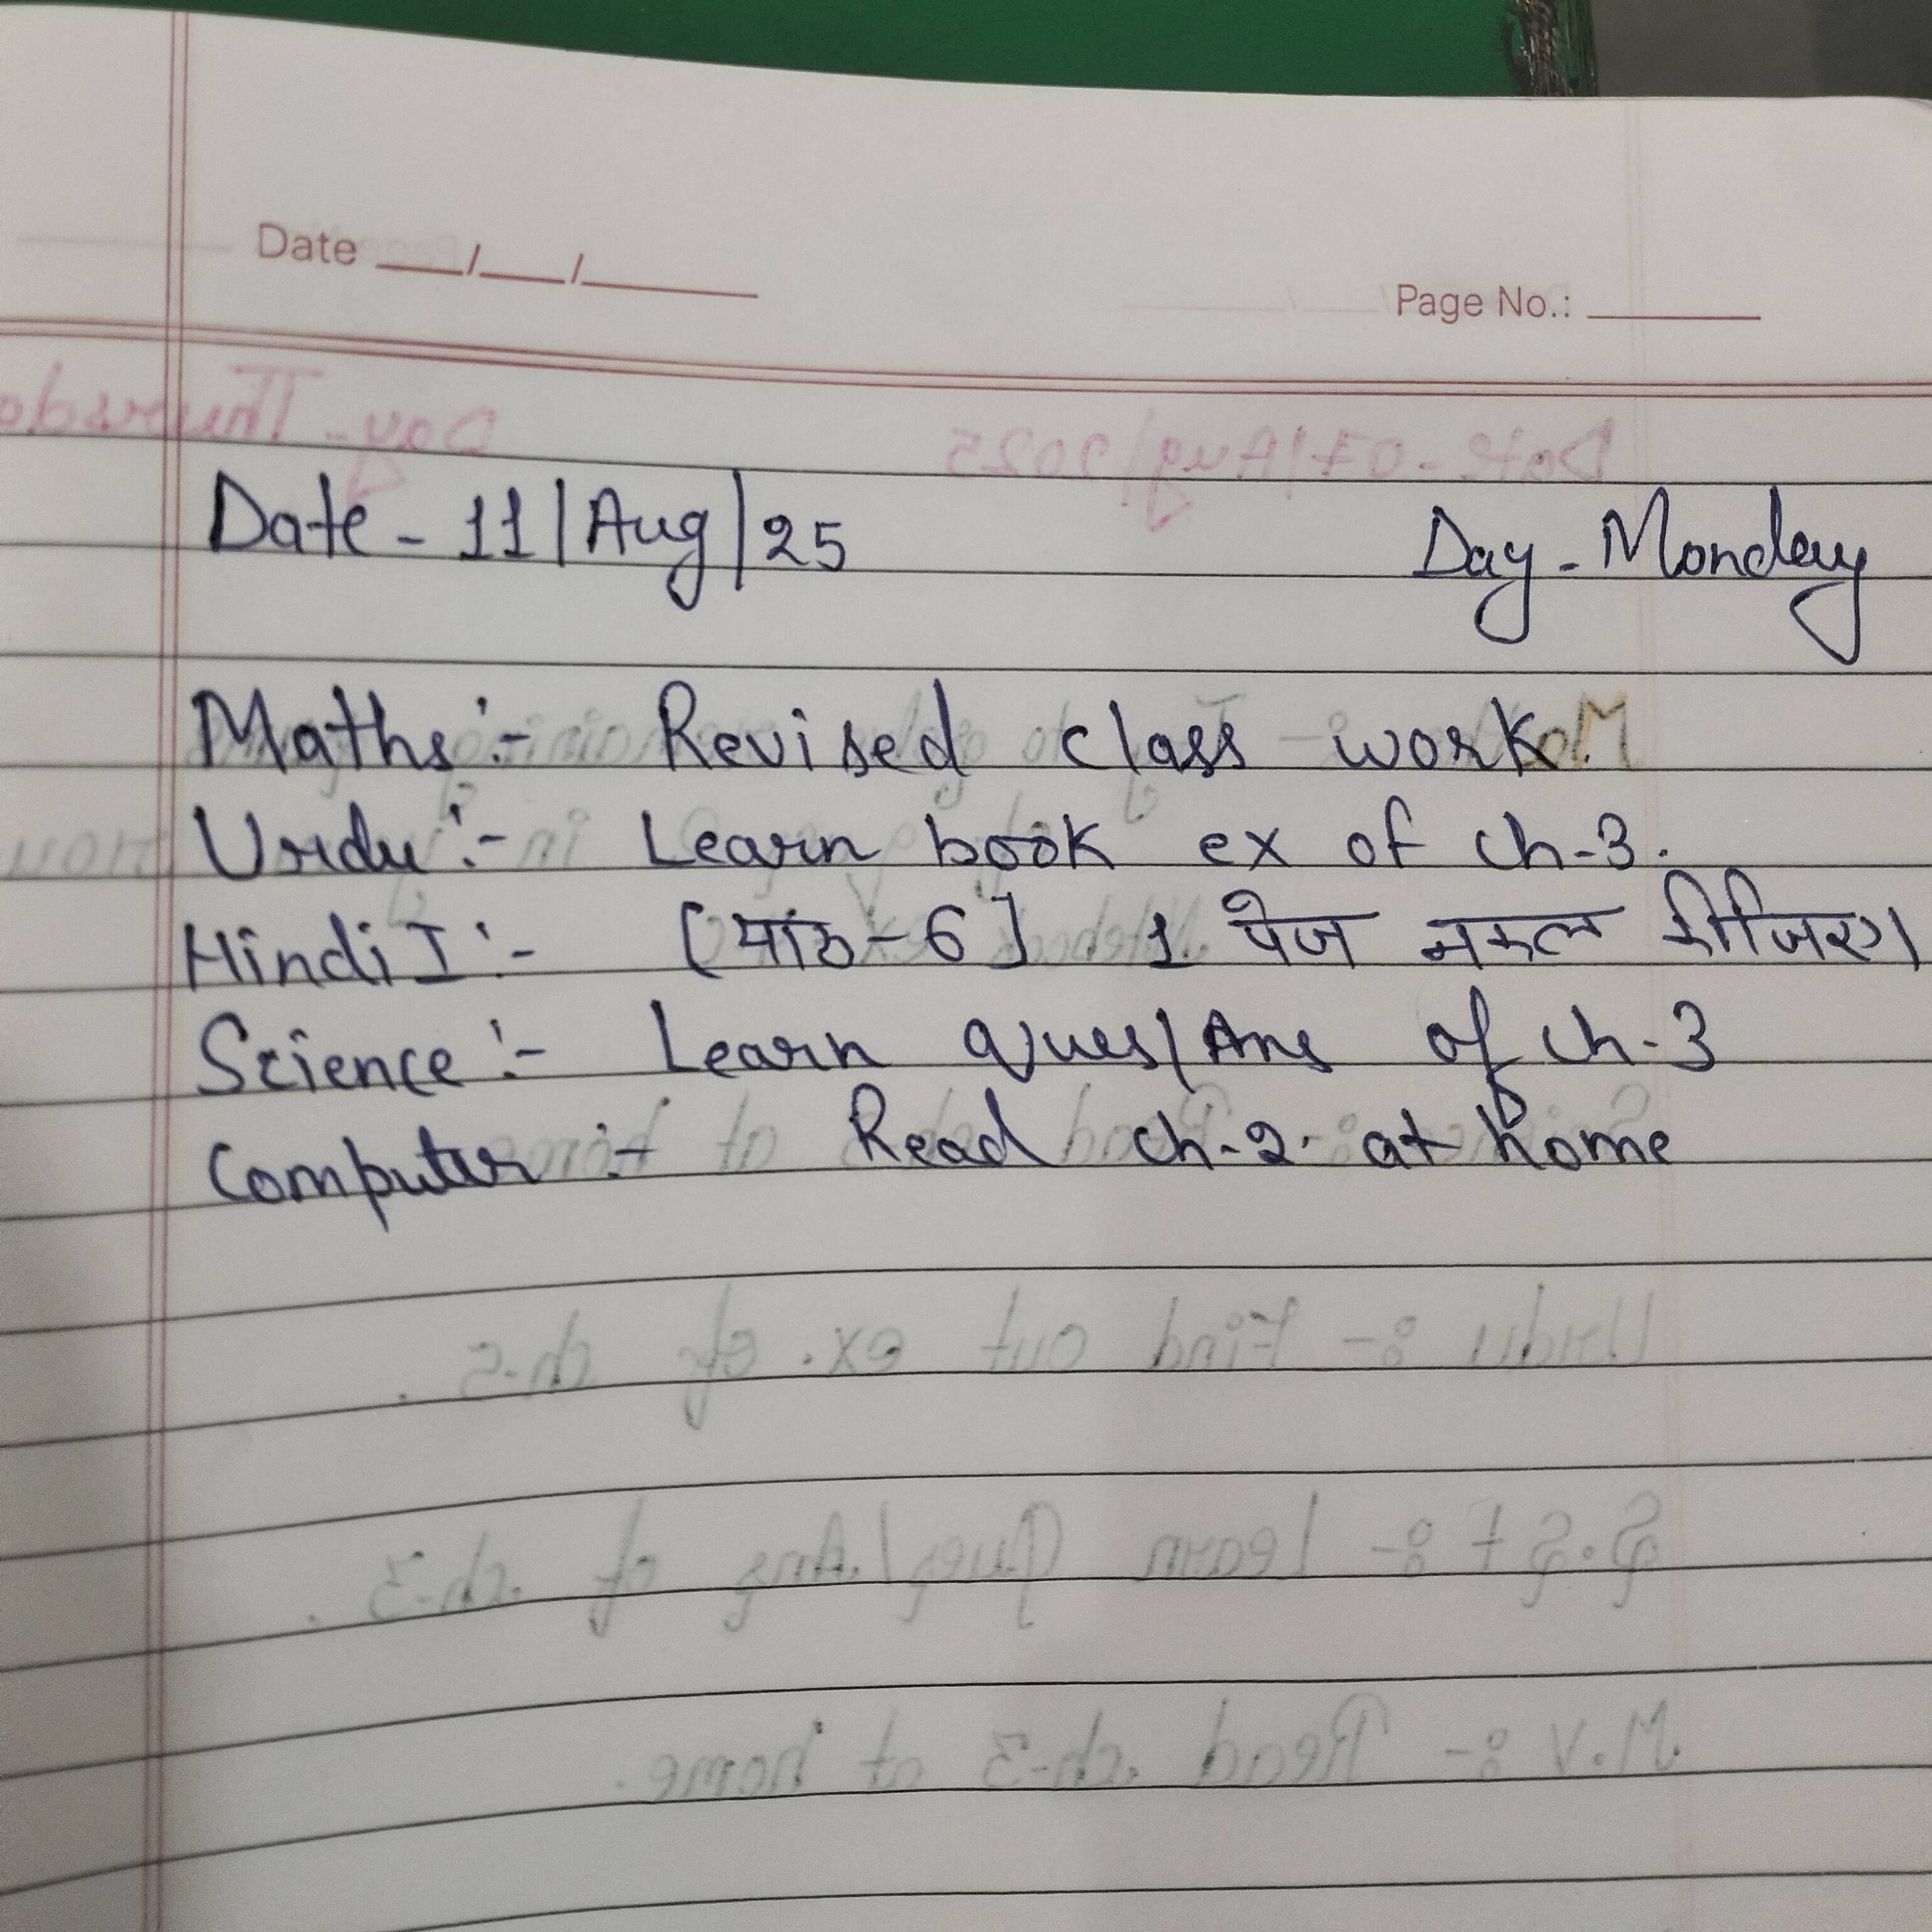 Date ___/___/_____
Page No.: _____
Date - 11/Aug/25 Day - Monday
Maths :- Revised class work.
Urdu :- Learn book ex of ch-3.
Hindi I :- [पाठ-6] 1 पेज नकल कीजिए।
Science :- Learn Ques/Ans of ch-3
Computer :- Read ch-2. at home